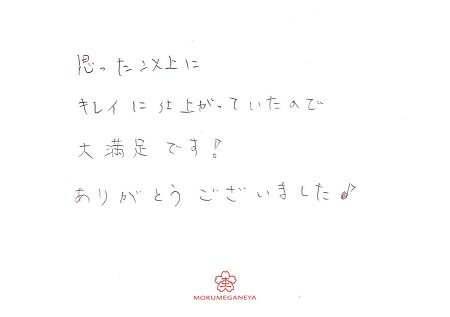 思った以上に
キレイに仕上がっていたので
大満足です!
ありがとうございました♪
杢
MOKUMEGANEYA